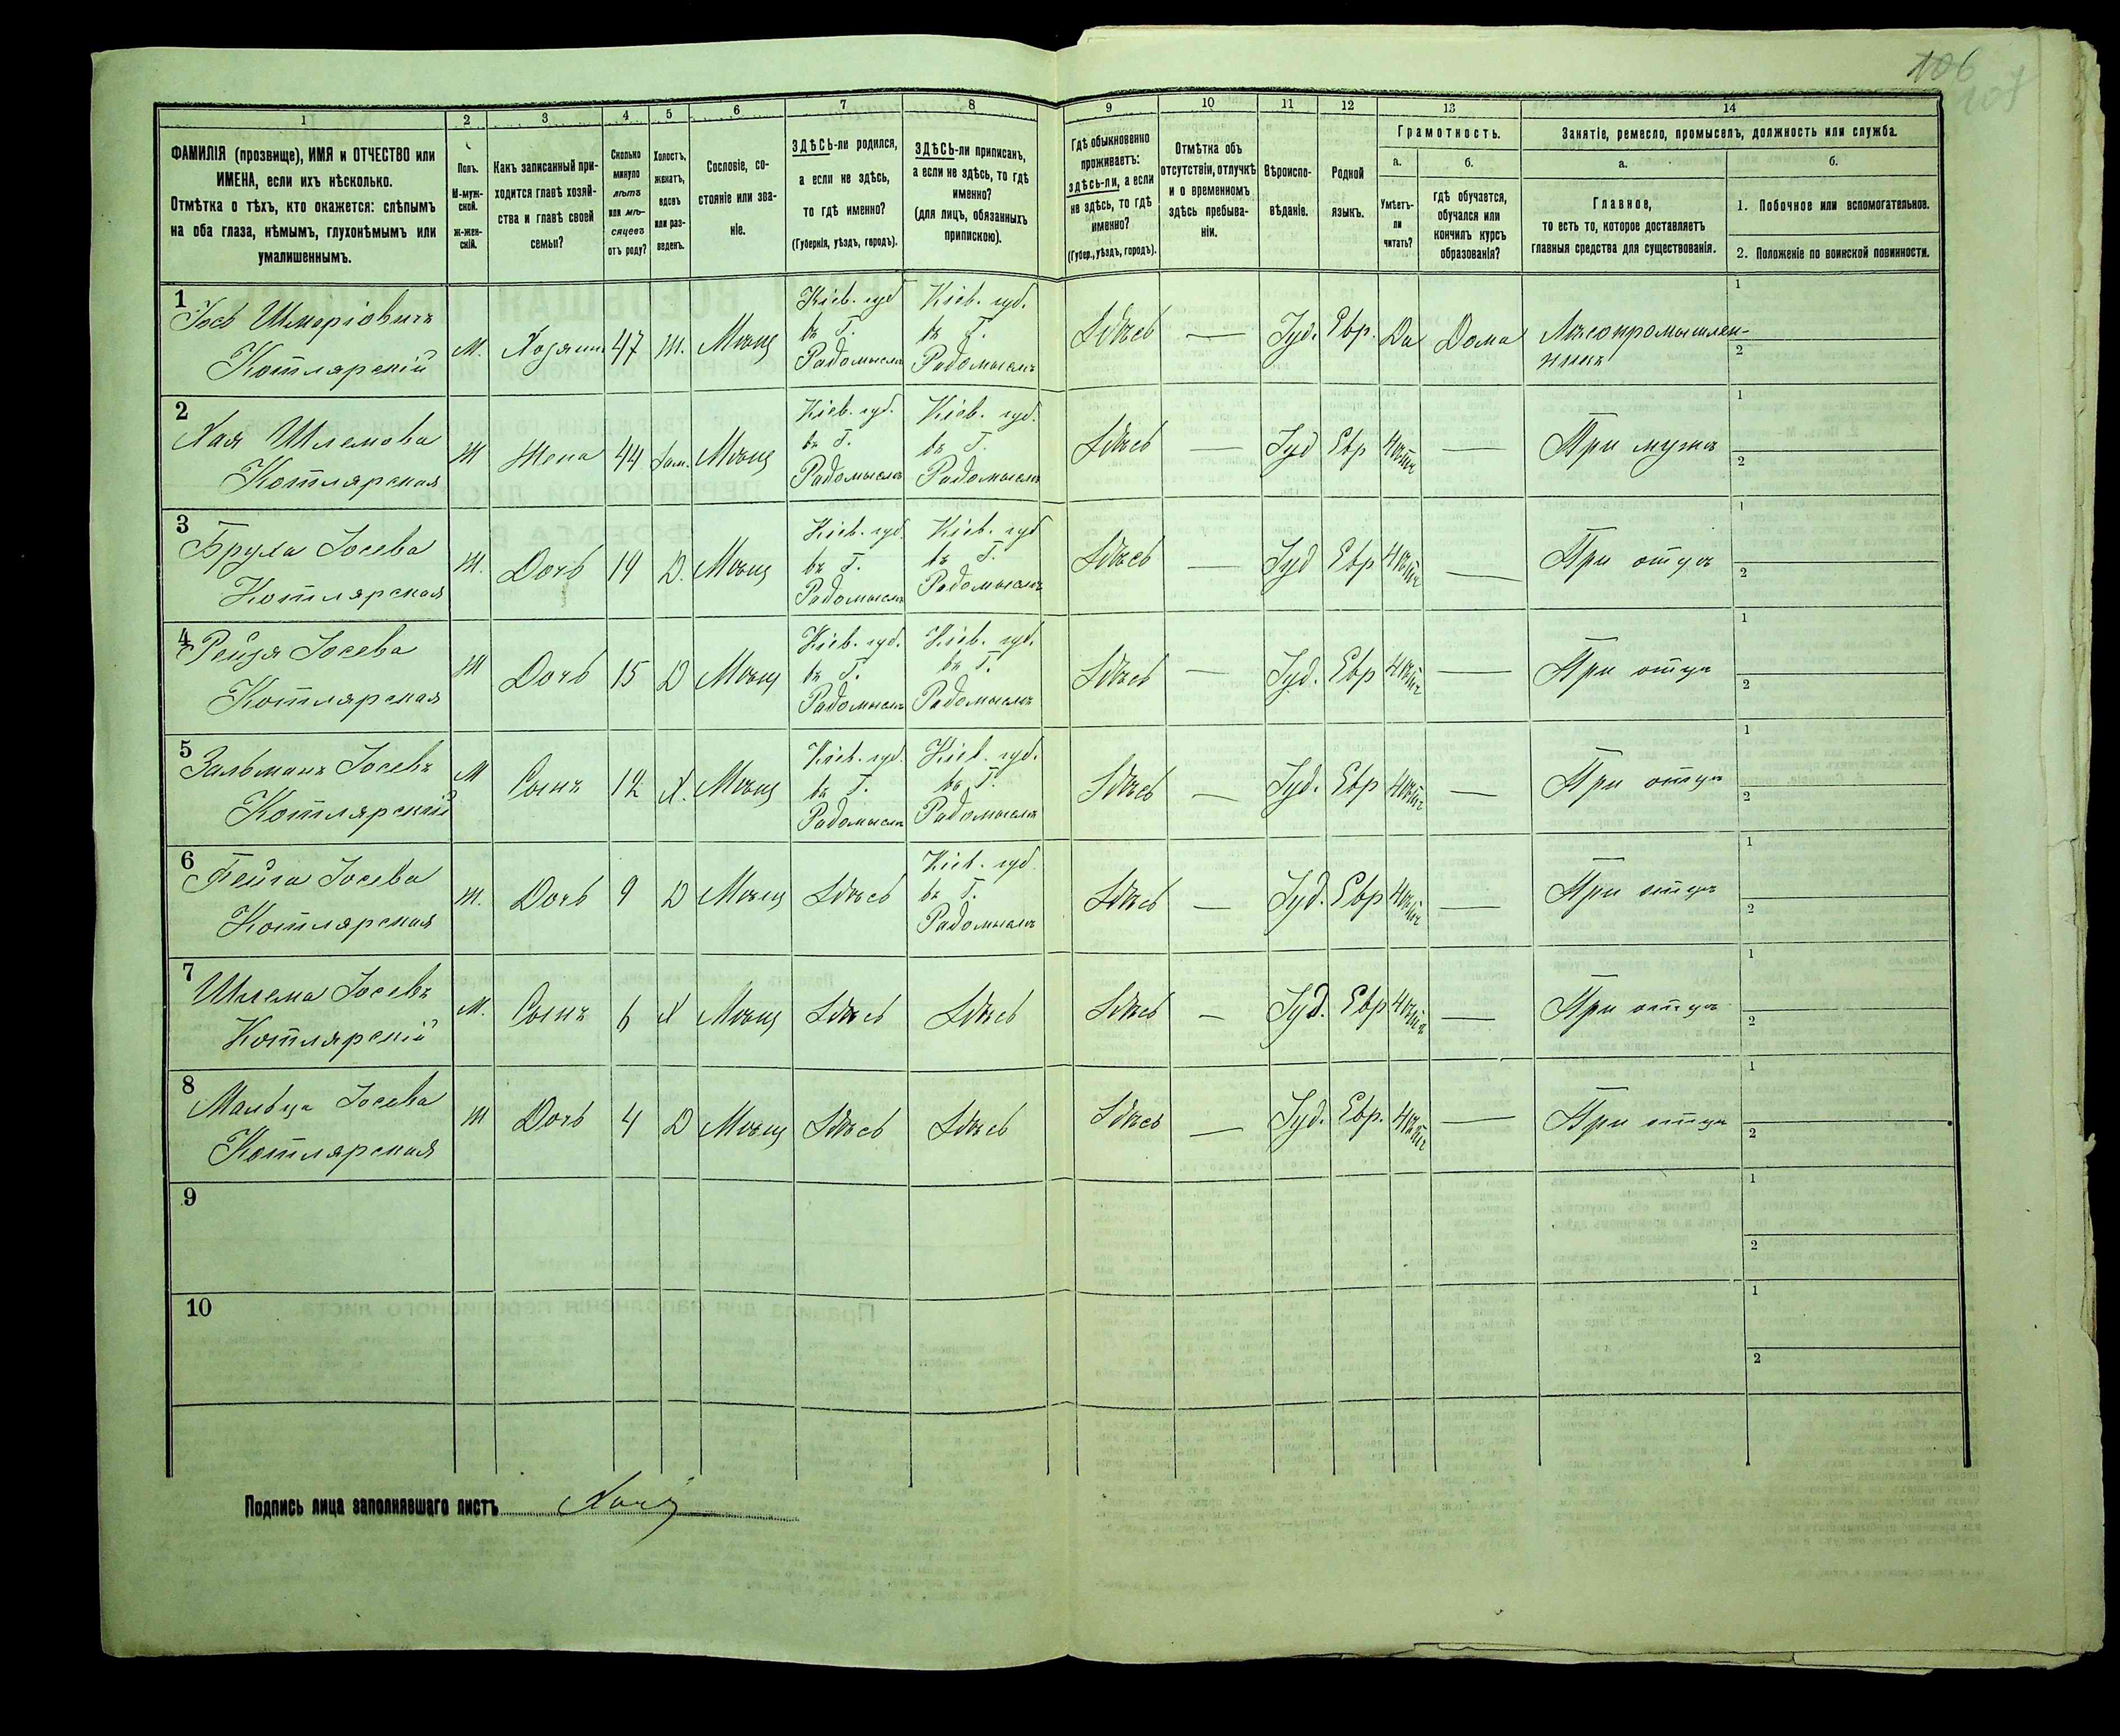 106
107
1
2
3
4
5
6
7
8
9
10
11
12
13
14
ФАМИЛІЯ (прозвище), ИМЯ и ОТЧЕСТВО или
ИМЕНА, если ихъ нѣсколько.
Отмѣтка о тѣхъ, кто окажется: слѣпымъ
на оба глаза, нѣмымъ, глухонѣмымъ или
умалишеннымъ.
Полъ.
М-муж-
ской.
ж-жен-
скій.
Какъ записанный при-
ходится главѣ хозяй-
ства и главѣ своей
семьи?
Сколько
минуло
лѣтъ
или мѣ-
сяцевъ
отъ роду?
Холостъ,
женатъ,
вдовъ
или раз-
веденъ.
Сословіе, со-
стояніе или зва-
ніе.
ЗДѢСЬ-ли родился,
а если не здѣсь,
то гдѣ именно?
(Губернія, уѣздъ, городъ).
ЗДѢСЬ-ли приписанъ,
а если не здѣсь, то гдѣ
именно?
(для лицъ, обязанныхъ
припискою).
Гдѣ обыкновенно
проживаетъ:
здѣсь-ли, а если
не здѣсь, то гдѣ
именно?
(Губер., уѣздъ, городъ).
Отмѣтка объ
отсутствіи, отлучкѣ
и о временномъ
здѣсь пребыва-
ніи.
Вѣроиспо-
вѣданіе.
Родной
языкъ.
Грамотность.
а.
Умѣетъ-
ли
читать?
б.
гдѣ обучается,
обучался или
кончилъ курсъ
образованія?
Занятіе, ремесло, промыселъ, должность или служба.
а.
Главное,
то есть то, которое доставляетъ
главныя средства для существованія.
б.
1. Побочное или вспомогательное.
2. Положеніе по воинской повинности.
1
Іось Шмаріовичъ
Котлярскій
М.
Хозяинъ
47
Ж.
Мѣщ
Кіев. губ
въ Г.
Радомыслѣ
Кіев. губ.
въ Г.
Радомыслѣ
Здѣсь
—
Іуд.
Евр.
Да
Дома
Лѣсопромышлен-
никъ
1
2
2
Хая Шлемова
Котлярская
Ж
Жена
44
Зам.
Мѣщ
Кіев. губ.
въ Г.
Радомыслѣ
Кіев. губ.
въ Г.
Радомыслѣ
Здѣсь
—
Іуд
Евр
Нѣтъ
—
При мужѣ
1
2
3
Іосева
Котлярская
Ж.
Дочь
19
Д.
Мѣщ
Кіев. губ
въ Г.
Радомыслѣ
Кіев. губ
въ Г.
Радомыслѣ
Здѣсь
—
Іуд
Евр
Нѣтъ
—
При отцѣ
1
2
4
Рейзя Іосева
Котлярская
Ж
Дочь
15
Д
Мѣщ
Кіев. губ.
въ Г.
Радомыслѣ
Кіев. губ.
въ Г.
Радомыслѣ
Здѣсь
—
Іуд.
Евр
Нѣтъ
—
При отцѣ
1
2
5
Зальманъ Іосевъ
Котлярскій
М
Сынъ
12
Х.
Мѣщ
Кіев. губ.
въ Г.
Радомыслѣ
Кіев. губ.
въ Г.
Радомыслѣ
Здѣсь
—
Іуд.
Евр
Нѣтъ
—
При отцѣ
1
2
6
Іосева
Котлярская
Ж.
Дочь
9
Д
Мѣщ
Здѣсь
Кіев. губ
въ Г.
Радомыслѣ
Здѣсь
—
Іуд.
Евр
Нѣтъ
—
При отцѣ
1
2
7
Шлема Іосевъ
Котлярскій
М.
Сынъ
6
Х
Мѣщ
Здѣсь
Здѣсь
Здѣсь
—
Іуд.
Евр
Нѣтъ
—
При отцѣ
1
2
8
Мальця Іосева
Котлярская
Ж
Дочь
4
Д
Мѣщ
Здѣсь
Здѣсь
Здѣсь
—
Іуд.
Евр.
Нѣтъ
—
При отцѣ
1
2
9
1
2
10
1
2
Подпись лица заполнявшаго листъ